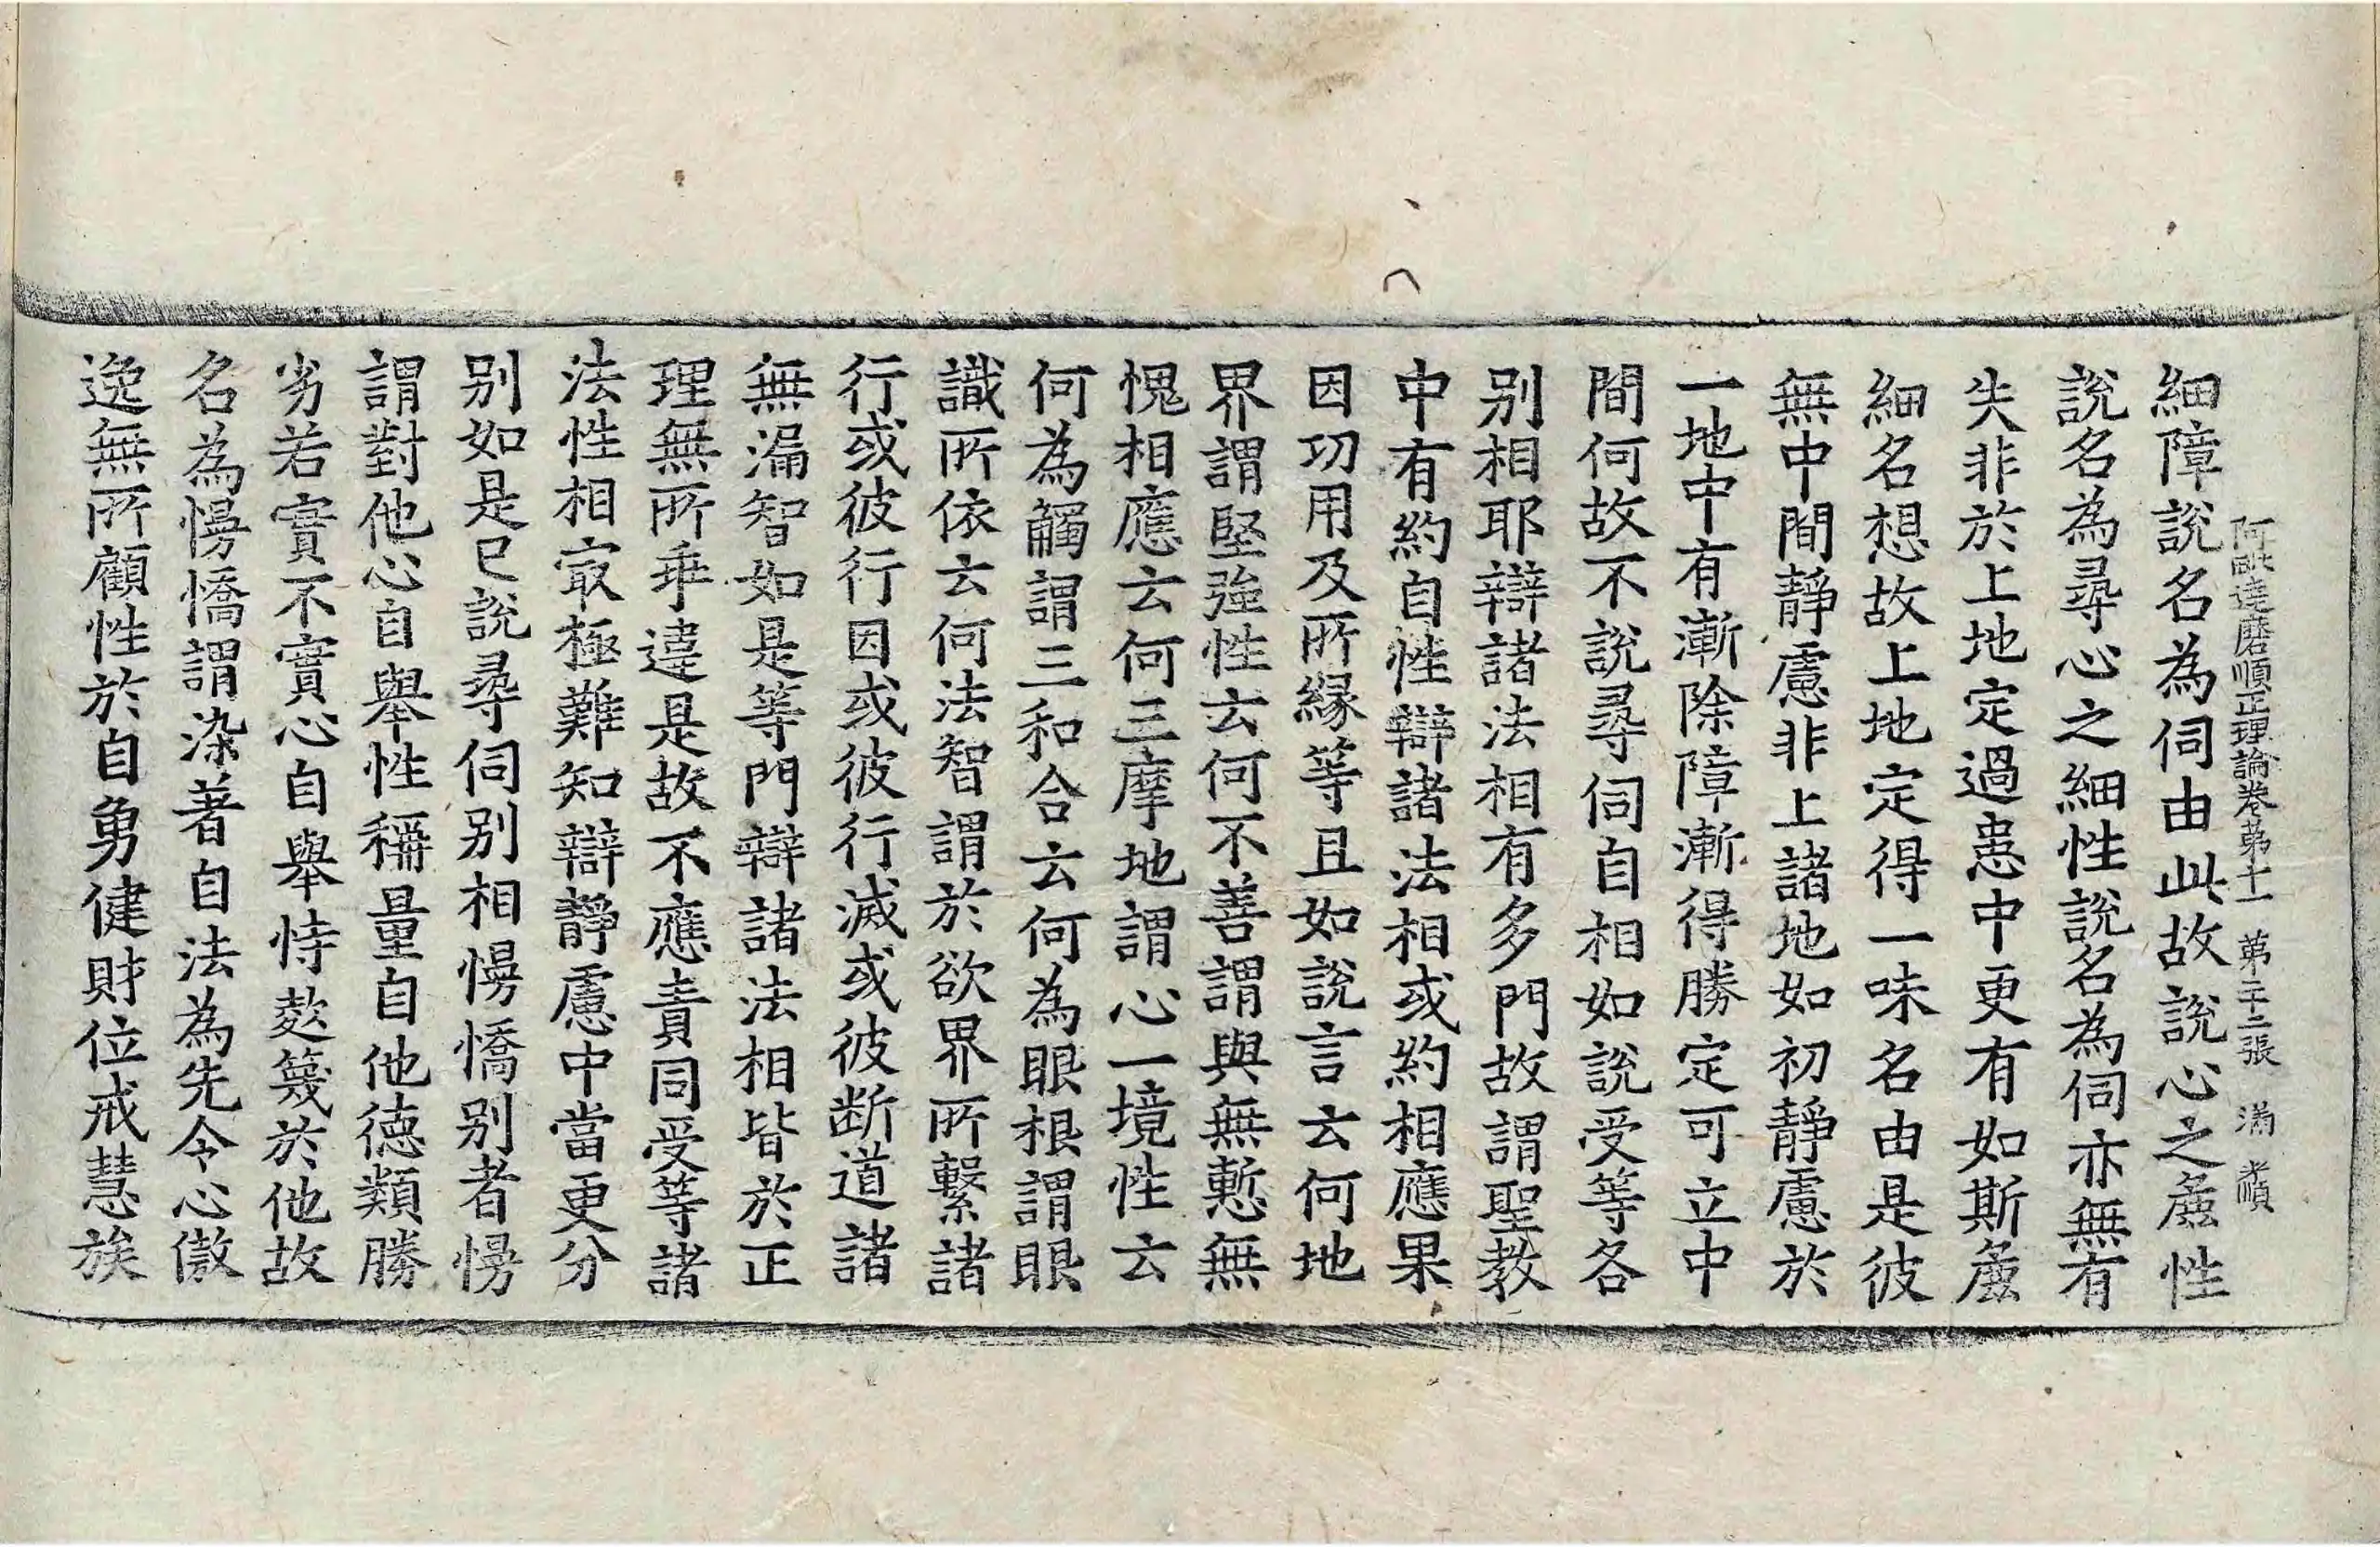 阿毗達磨順正理論卷第十一 第二十二張 滿 孝順
細障說名為伺由此故說心之麁性
說名為尋心之細性說名為伺亦無有
失非於上地定過患中更有如斯麁
細名想故上地定得一味名由是彼
無中間靜慮非上諸地如初靜慮於
一地中有漸除障漸得勝定可立中
間何故不說尋伺自相如說受等各
別相耶辯諸法相有多門故謂聖教
中有約自性辯諸法相或約相應果
因功用及所緣等且如說言云何地
界謂堅強性云何不善謂與無慙無
愧相應云何三摩地謂心一境性云
何為觸謂三和合云何為眼根謂眼
識所依云何法智謂於欲界所繫諸
行或彼行因或彼行滅或彼斷道諸
無漏智如是等門辯諸法相皆於正
理無所乖違是故不應責同受等諸
法性相㝡極難知辯靜慮中當更分
別如是已說尋伺別相慢憍別者慢
謂對他心自舉性稱量自他德類勝
劣若實不實心自舉恃蔑於他故
名為慢憍謂染著自法為先令心傲
逸無所顧性於自勇健財位戒慧族